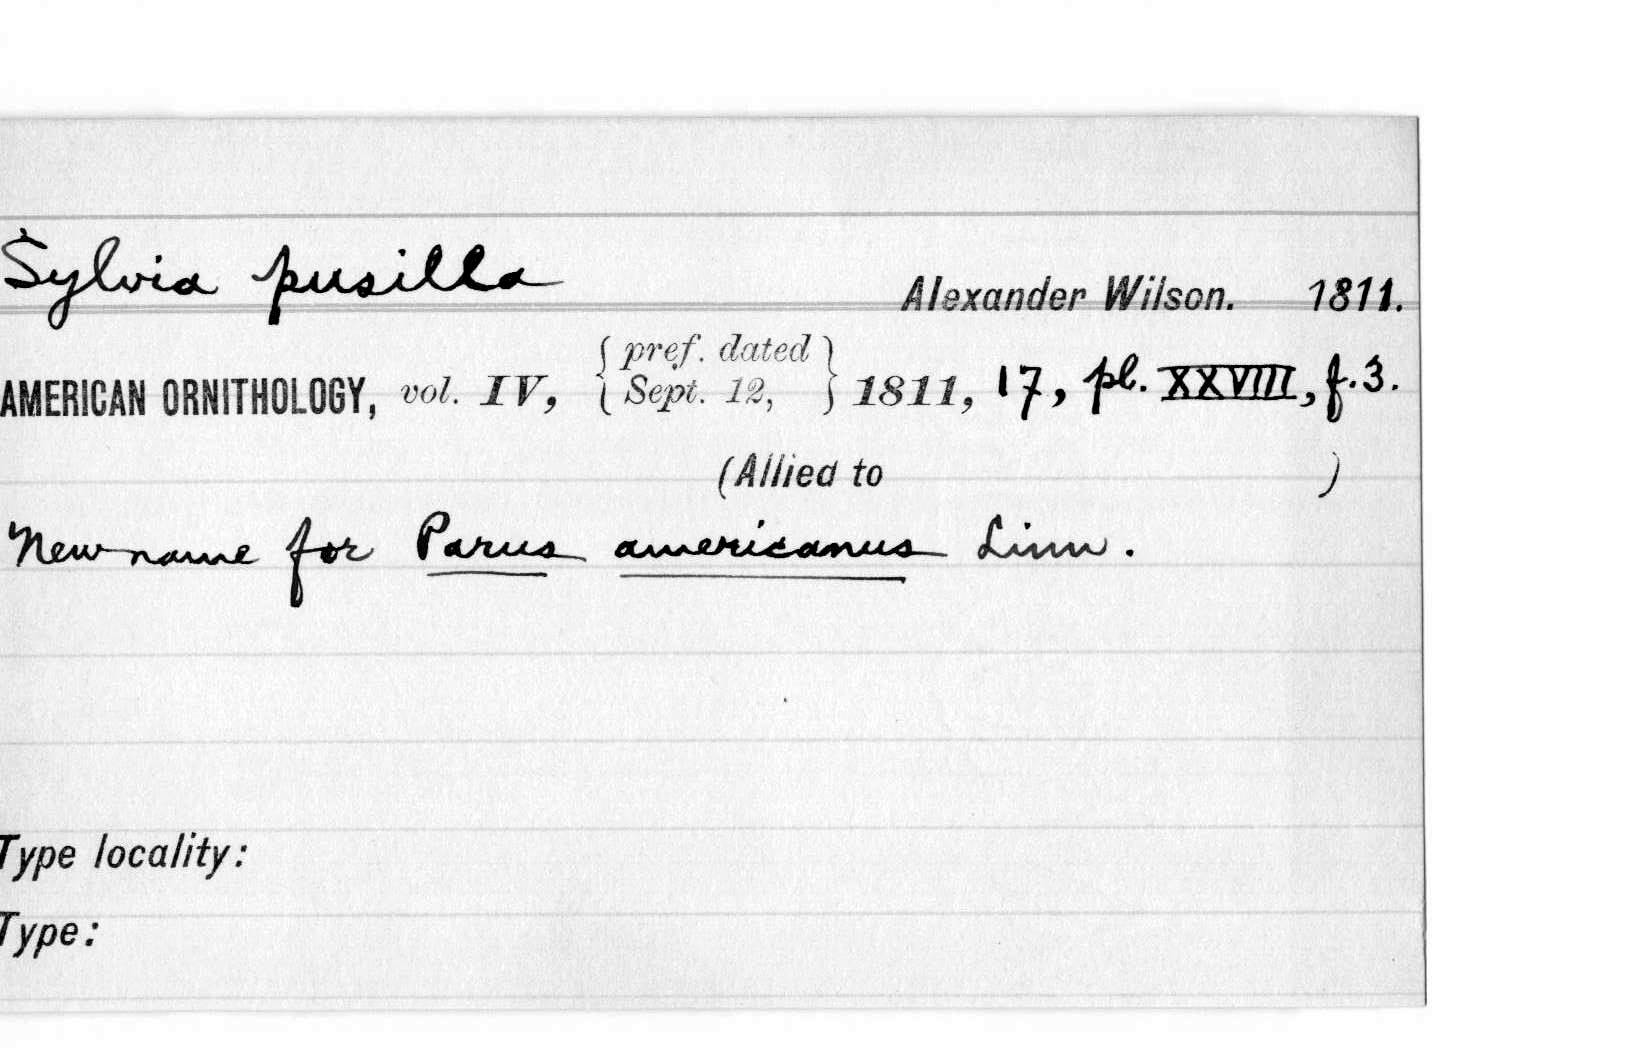 Sylvia pusilla Alexander Wilson. 1811.
AMERICAN ORNITHOLOGY, vol. IV, { pref. dated Sept. 12, } 1811, 17, pl. XXVIII, f. 3.
(Allied to )
New name for Parus americanus Linn.
Type locality:
Type: